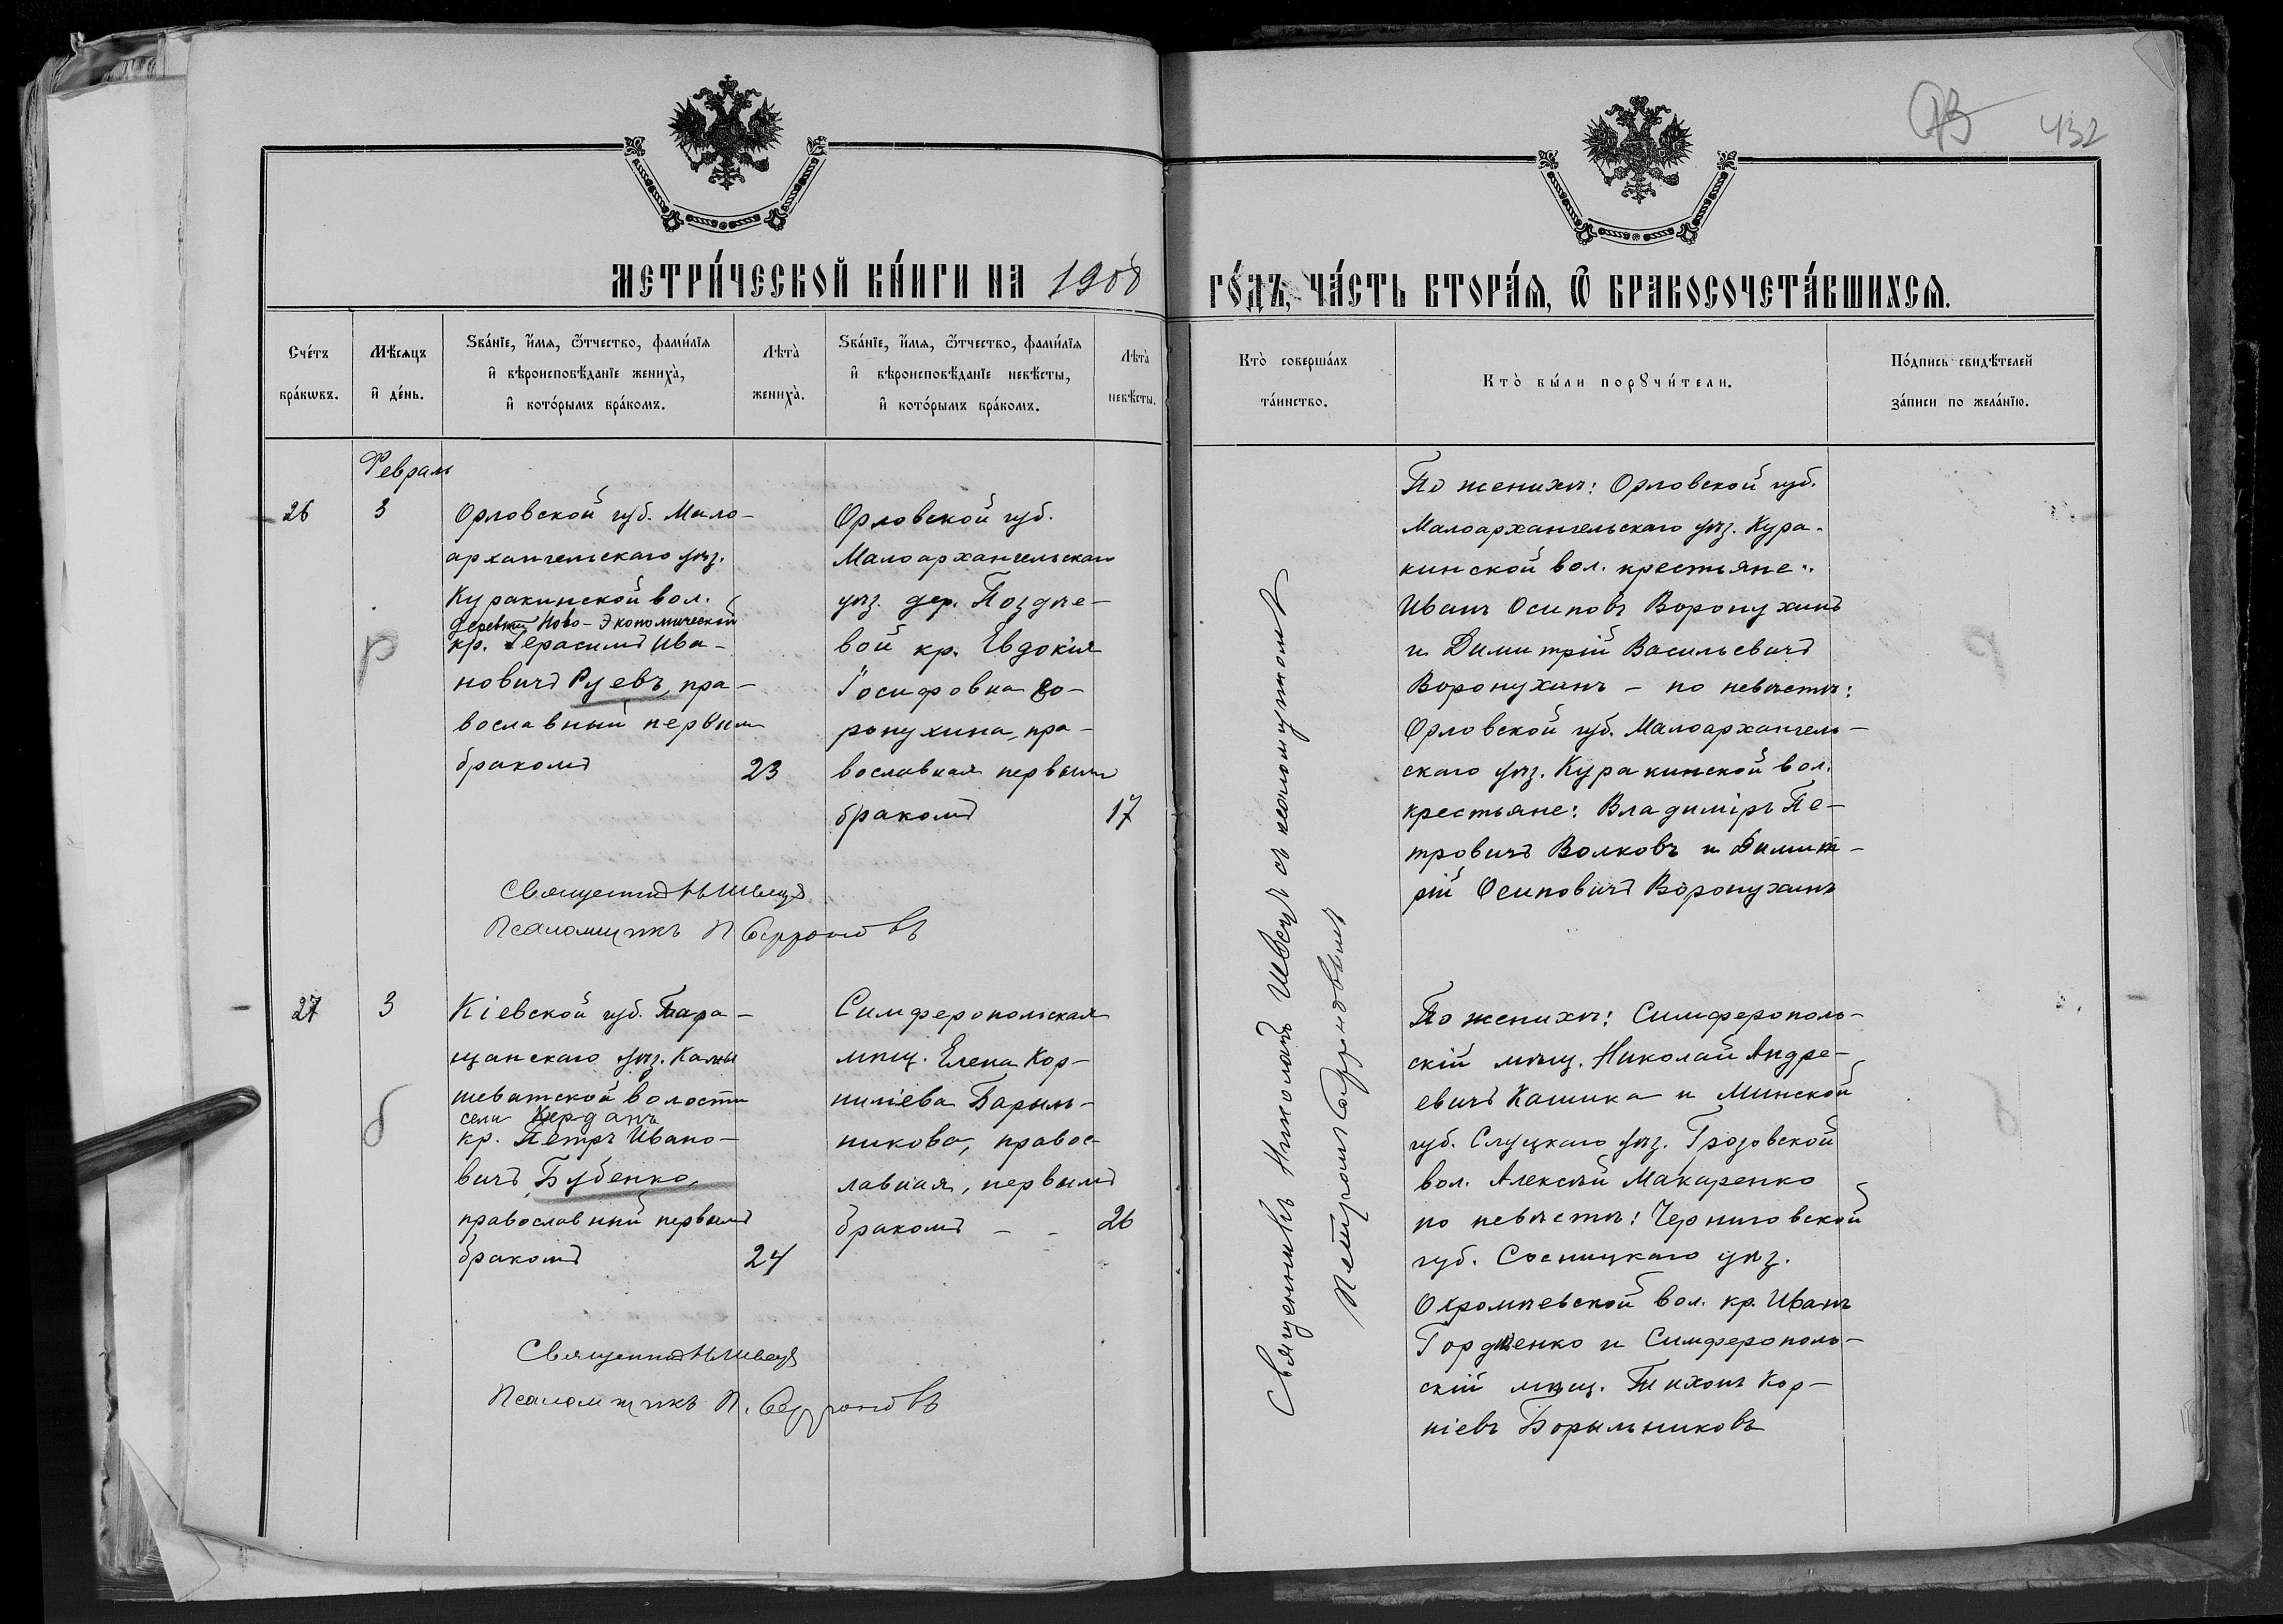 432
МЕТРИ́ЧЕСКОЙ КНИ́ГИ НА 1908
ГО́ДЪ, ЧА́СТЬ ВТОРА́Я, Ѿ БРАКОСОЧЕТА́ВШИХСЯ.
Сче́тъ бра́кωвъ.
Мѣ́сяцъ и҆ де́нь.
Ѕва́нїе, и҆́мя, ѻ҆́тчество, фами́лїя
и҆ вѣроисповѣ́данїе жениха̀,
и҆ кото́рымъ бра́комъ.
Лѣта̀ жениха̀.
Ѕва́нїе, и҆́мя, ѻ҆́тчество, фами́лїя
и҆ вѣроисповѣ́данїе невѣ́сты,
и҆ кото́рымъ бра́комъ.
Лѣта̀ невѣ́сты.
Кто̀ соверша́лъ
та́инство.
Кто̀ бы́ли порꙋчи́тели.
По́дпись свидѣ́телей
за́писи по жела́нїю.
Февраль
26
3
Орловской губ. Мало-
архангельскаго уѣз.
Куракинской вол.
деревни Ново-Экономической
кр. Герасимъ Ива-
новичъ Руевъ, пра-
вославный первым
бракомъ
23
Орловской губ.
Малоархангельскаго
уѣз. дер. Поздѣе-
вой кр. Евдокія
Іосифовна Во-
ропухина, пра-
вославная первымъ
бракомъ
17
Священникъ Н. Швецъ
Псаломщикъ П. Сафроновъ
р
По женихѣ: Орловской губ.
Малоархангельскаго уѣз. Кура-
кинской вол. крестьяне:
Иванъ Осиповъ Воропухинъ
и Димитрій Васильевичъ
Воропухинъ - по невѣстѣ:
Орловской губ. Малоархангель-
скаго уѣз. Куракинской вол.
крестьяне: Владиміръ Пе-
тровичъ Волковъ и Димит-
рій Осиповичъ Воропухинъ
Священникъ Николай Швецъ съ псаломщикомъ
Петромъ Сафроновымъ
27
3
б
Кіевской губ. Тара-
щанскаго уѣз. Камы
шеватской волости
села Керданъ
кр. Петръ Ивано-
вичъ Бубенко,
православный первымъ
бракомъ
24
Симферопольская
мѣщ. Елена Кор-
ниліева Барыль-
никова, правос-
лавная, первымъ
бракомъ - -
26
Священникъ Н. Швецъ
Псаломщикъ П. Сафроновъ
По женихѣ: Симферополь-
скій мѣщ. Николай Андре-
евичъ Кашика и Минской
губ. Слуцкаго уѣз. Грозовской
вол. Алексѣй Макаренко
по невѣстѣ: Черниговской
губ. Сосницкаго уѣз.
Охромѣевской вол. кр. Иванъ
Гордѣенко и Симферополь-
скій мѣщ. Тихонъ Кор-
ніевъ Борыльниковъ